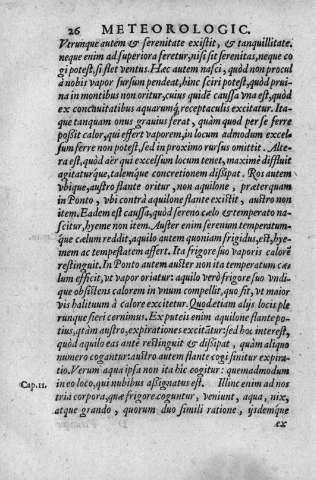 26 METEOROLOGIC.
Verunque autem & serenitate existit, & tanquillitate.
neque enim ad superiora feretur, nisi sit serenitas, neque co
gi potest, si flet ventus. Hæc autem nasci, quòd non procul
à nobis vapor sursum pendeat, hinc sciri potest, quòd prui
na in montibus non oritur, cuius quidẽ caussa vna est, quòd
ex concauitatibus aquarumq; receptaculis excitatur. Ita-
que tanquam onus grauius ferat, quàm quod per se ferre
possit calor, qui effert vaporem, in locum admodum excel
sum ferre non potest, sed in proximo rursus omittit. Alte-
ra est, quòd aër qui excelsum locum tenet, maximè diffluit
agitaturque, talemque concretionem dissipat. Ros autem
vbique, austro flante oritur, non aquilone, præterquam
in Ponto, vbi contrà aquilone flante existit, austro non
item. Eadem est caussa, quòd sereno cælo & temperato na-
scitur, hyeme non item. Auster enim serenum temperatum-
que cælum reddit, aquilo autem quoniam frigidus, est, hye-
mem ac tempestatem affert. Ita frigore suo vaporis calorẽ
restinguit. In Ponto autem auster non ita temperatum cæ-
lum efficit, vt vapor oriatur: aquilo verò frigore suo vndi-
que obsistens calorem in vnum compellit, quo fit, vt maior
vis halituum à calore excitetur. Quod etiam alijs locis ple
runque fieri cernimus. Ex puteis enim aquilone flante po-
tius, quàm austro, expirationes excitãtur: sed hoc interest,
quòd aquilo eas antè restinguit & dissipat, quàm aliquo
numero cogantur: austro autem flante cogi sinitur expira-
tio. Verum aqua ipsa non ita hic cogitur: quemadmodum
Cap.11. in eo loco, qui nubibus assignatus est. Illinc enim ad nos
tria corpora, quæ frigore coguntur, veniunt, aqua, nix,
atque grando, quorum duo simili ratione, ijsdemque
ex